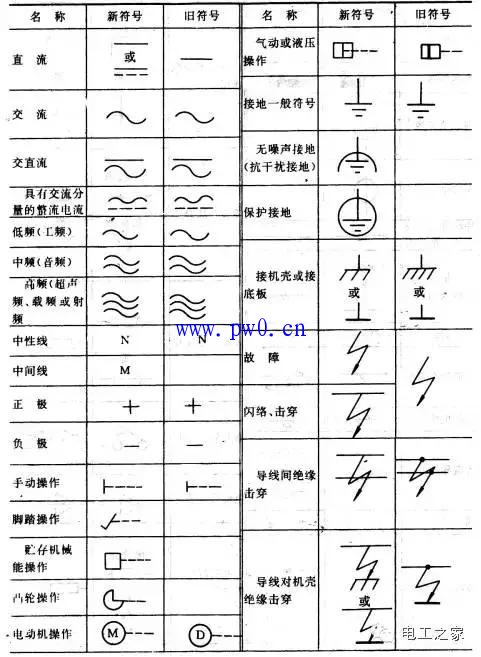 名 称 新符号 旧符号
直 流 或
交 流
交直流
具有交流分
量的整流电流
低频(工频)
中频(音频)
高频(超声
频、载频或射
频
中性线 N N
中间线 M
正 极 + +
负 极 — —
手动操作
脚踏操作
贮存机械
能操作
凸轮操作
电动机操作 M D
名 称 新符号 旧符号
气动或液压
操作
接地一般符号
无噪声接地
(抗干扰接地)
保护接地
接机壳或接
底板 或 或
故 障
闪络、击穿
导线间绝缘
击穿
导线对机壳
绝缘击穿 或
www.pw0.cn
电工之家